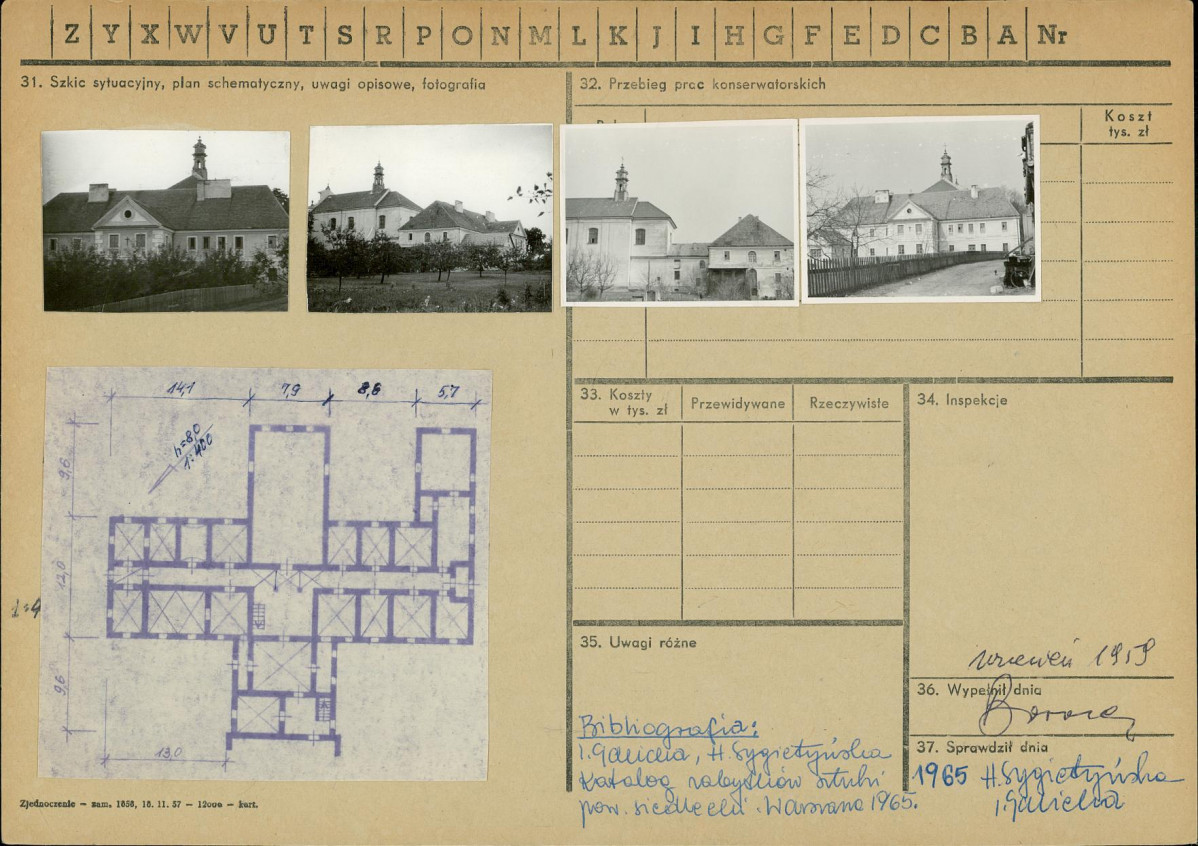 Z Y X W V U T S R P O N M L K J I H G F E D C B A Nr
31. Szkic sytuacyjny, plan schematyczny, uwagi opisowe, fotografia
32. Przebieg prac konserwatorskich
Koszt
tys. zł
14,1 7,9 8,6 5,7
h=8,0
1:400
9,6
12,0
9,6
13,0
33. Koszty
w tys. zł
Przewidywane
Rzeczywiste
34. Inspekcje
35. Uwagi różne
Bibliografia:
I. Galicka, H. Sygietyńska
Katalog zabytków sztuki
pow. siedlecki. Warszawa 1965.
wrzesień 1959
36. Wypełnił dnia
37. Sprawdził dnia
1965 H. Sygietyńska
I. Galicka
Zjednoczenie – zam. 1656, 16. 11. 57 – 12000 – kart.